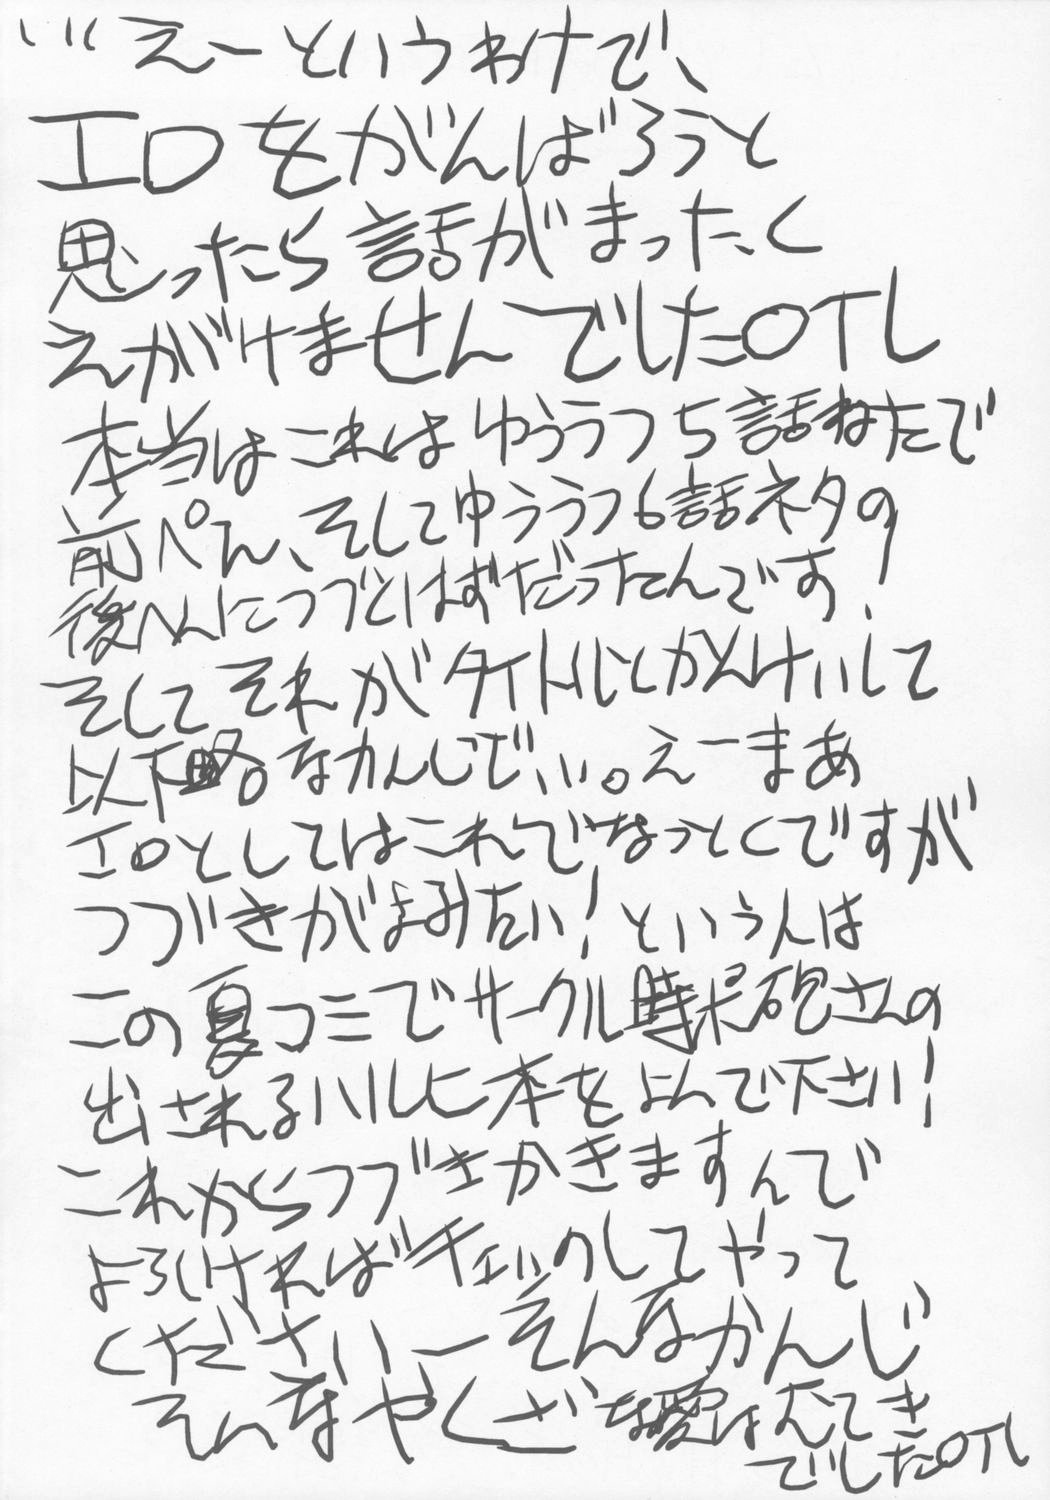 …えーというわけで、
エロをがんばろうと
思ったら話がまったく
えがけませんでしたOTL
本当はこれはゆううつ5話ねたで
前ぺん、そしてゆううつ6話ネタの
後へんにつづくはずだったんです!
そしてそれがタイトルとかんけいして
以下略。なかんじで…。えーまあ
エロとしてはこれでなっとくですが
つづきがよみたい!という人は
この夏コミでサークル時限砲さんの
出されるハルヒ本をよんで下さい!
これからつづきかきますんで
よろしければチェックしてやって
くださいーそんなかんじ
そんなやくざな愛はむてき
でしたOTL